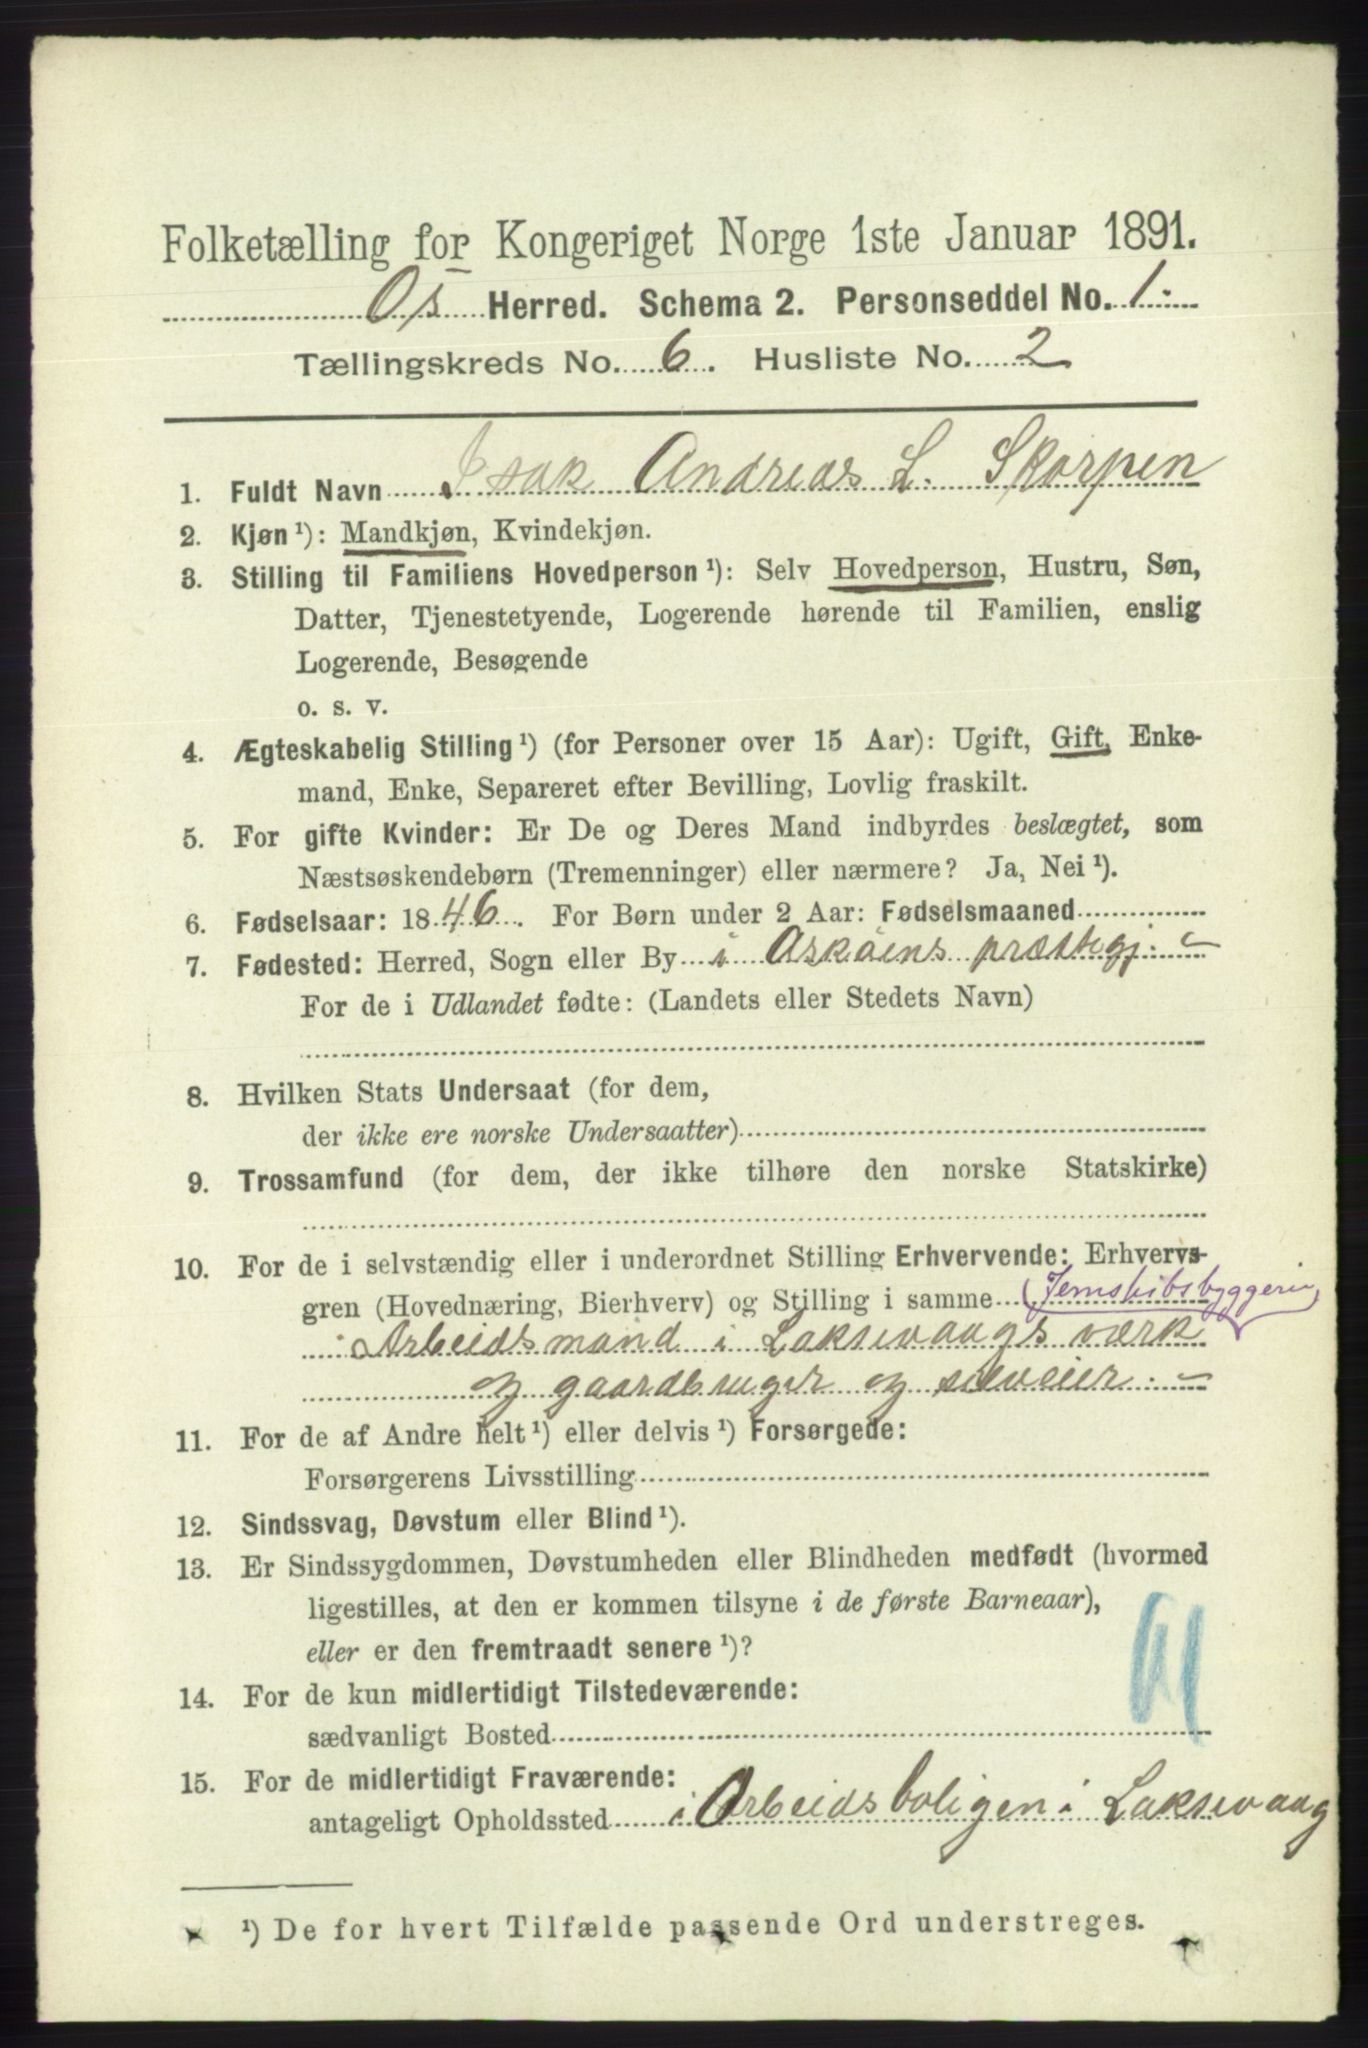 Folketælling for Kongeriget Norge 1ste Januar 1891.
Os Herred. Schema 2. Personseddel No. 1.
Tællingskreds No. 6. Husliste No. 2
1. Fuldt Navn Isak Andreas L. Skorpen
2. Kjøn ¹): Mandkjøn, Kvindekjøn.
3. Stilling til Familiens Hovedperson ¹): Selv Hovedperson, Hustru, Søn,
Datter, Tjenestetyende, Logerende hørende til Familien, enslig
Logerende, Besøgende
o. s. v.
4. Ægteskabelig Stilling ¹) (for Personer over 15 Aar): Ugift, Gift, Enke-
mand, Enke, Separeret efter Bevilling, Lovlig fraskilt.
5. For gifte Kvinder: Er De og Deres Mand indbyrdes beslægtet, som
Næstsøskendebørn (Tremenninger) eller nærmere? Ja, Nei ¹).
6. Fødselsaar: 1846. For Børn under 2 Aar: Fødselsmaaned
7. Fødested: Herred, Sogn eller By i Askøens præstegj.
For de i Udlandet fødte: (Landets eller Stedets Navn)
8. Hvilken Stats Undersaat (for dem,
der ikke ere norske Undersaatter)
9. Trossamfund (for dem, der ikke tilhøre den norske Statskirke)
10. For de i selvstændig eller i underordnet Stilling Erhvervende: Erhvervs-
gren (Hovednæring, Bierhverv) og Stilling i samme (Jernskibsbyggeri)
Arbeidsmand i Laksevaags værk
og gaardbruger og selveier.
11. For de af Andre helt ¹) eller delvis ¹) Forsørgede:
Forsørgerens Livsstilling
12. Sindssvag, Døvstum eller Blind ¹).
13. Er Sindssygdommen, Døvstumheden eller Blindheden medfødt (hvormed
ligestilles, at den er kommen tilsyne i de første Barneaar),
eller er den fremtraadt senere ¹)?
14. For de kun midlertidigt Tilstedeværende:
sædvanligt Bosted
15. For de midlertidigt Fraværende:
antageligt Opholdssted i Arbeidsboligen i Laksevaag
¹) De for hvert Tilfælde passende Ord understreges.